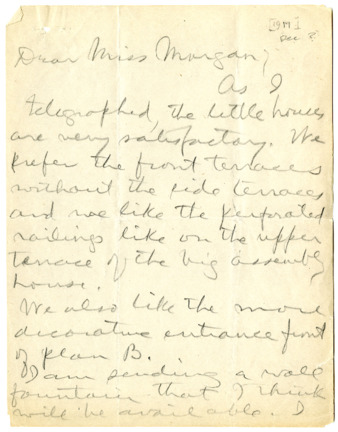 [1919]
Dec ?
Dear Miss Morgan,
As I
telegraphed, the little houses
are very satisfactory. We
prefer the front terraces
without the side terraces
and we like the perforated
railings like on the upper
terrace of the big assembly
house.
We also like the more
decorative entrance front
of plan B.
I am sending a wall
fountain that I think
will be available. I